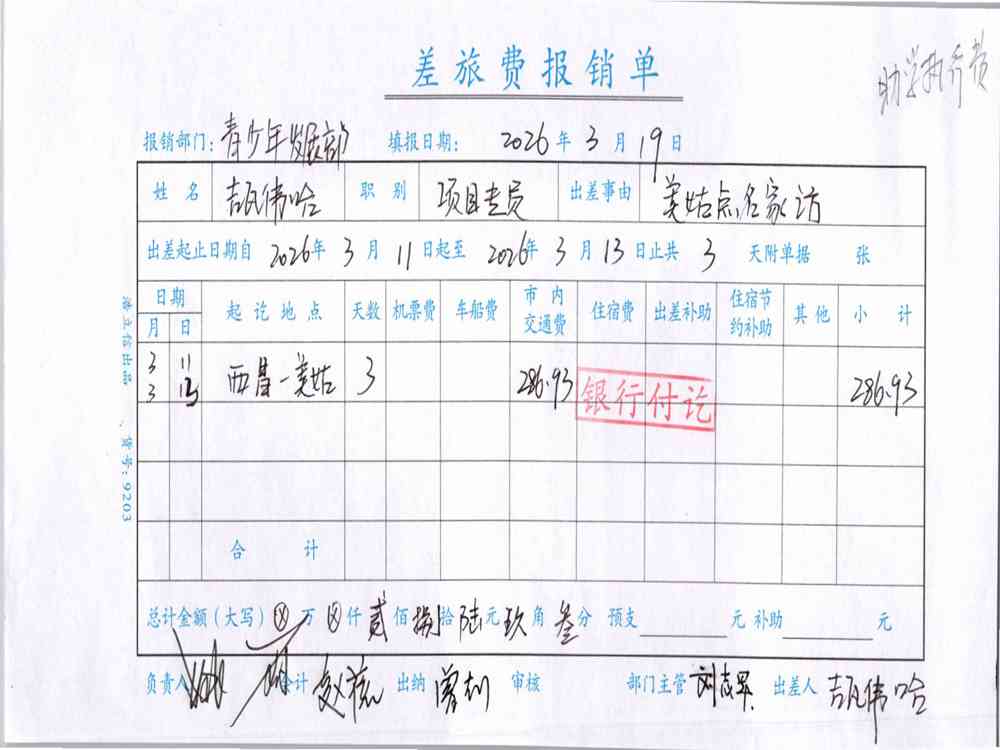 差旅费报销单
助学执行费
报销部门：青少年发展部 填报日期： 2026年3月19日
姓名 吉瓦伟哈 职别 项目专员 出差事由 美姑点名家访
出差起止日期自2026年3月11日起至2026年3月13日止共3天附单据 张
日期 起讫地点 天数 机票费 车船费 市内交通费 住宿费 出差补助 住宿节约补助 其他 小计
月 日
3 11 西昌-美姑 3 286.93 286.93
3 13
银行付讫
合计
总计金额（大写）ⓧ万ⓧ仟贰佰捌拾陆元玖角叁分 预支 元 补助 元
负责人 会计 出纳 曾利 审核 部门主管 出差人 吉瓦伟哈
浩立信出品 、货号：9203